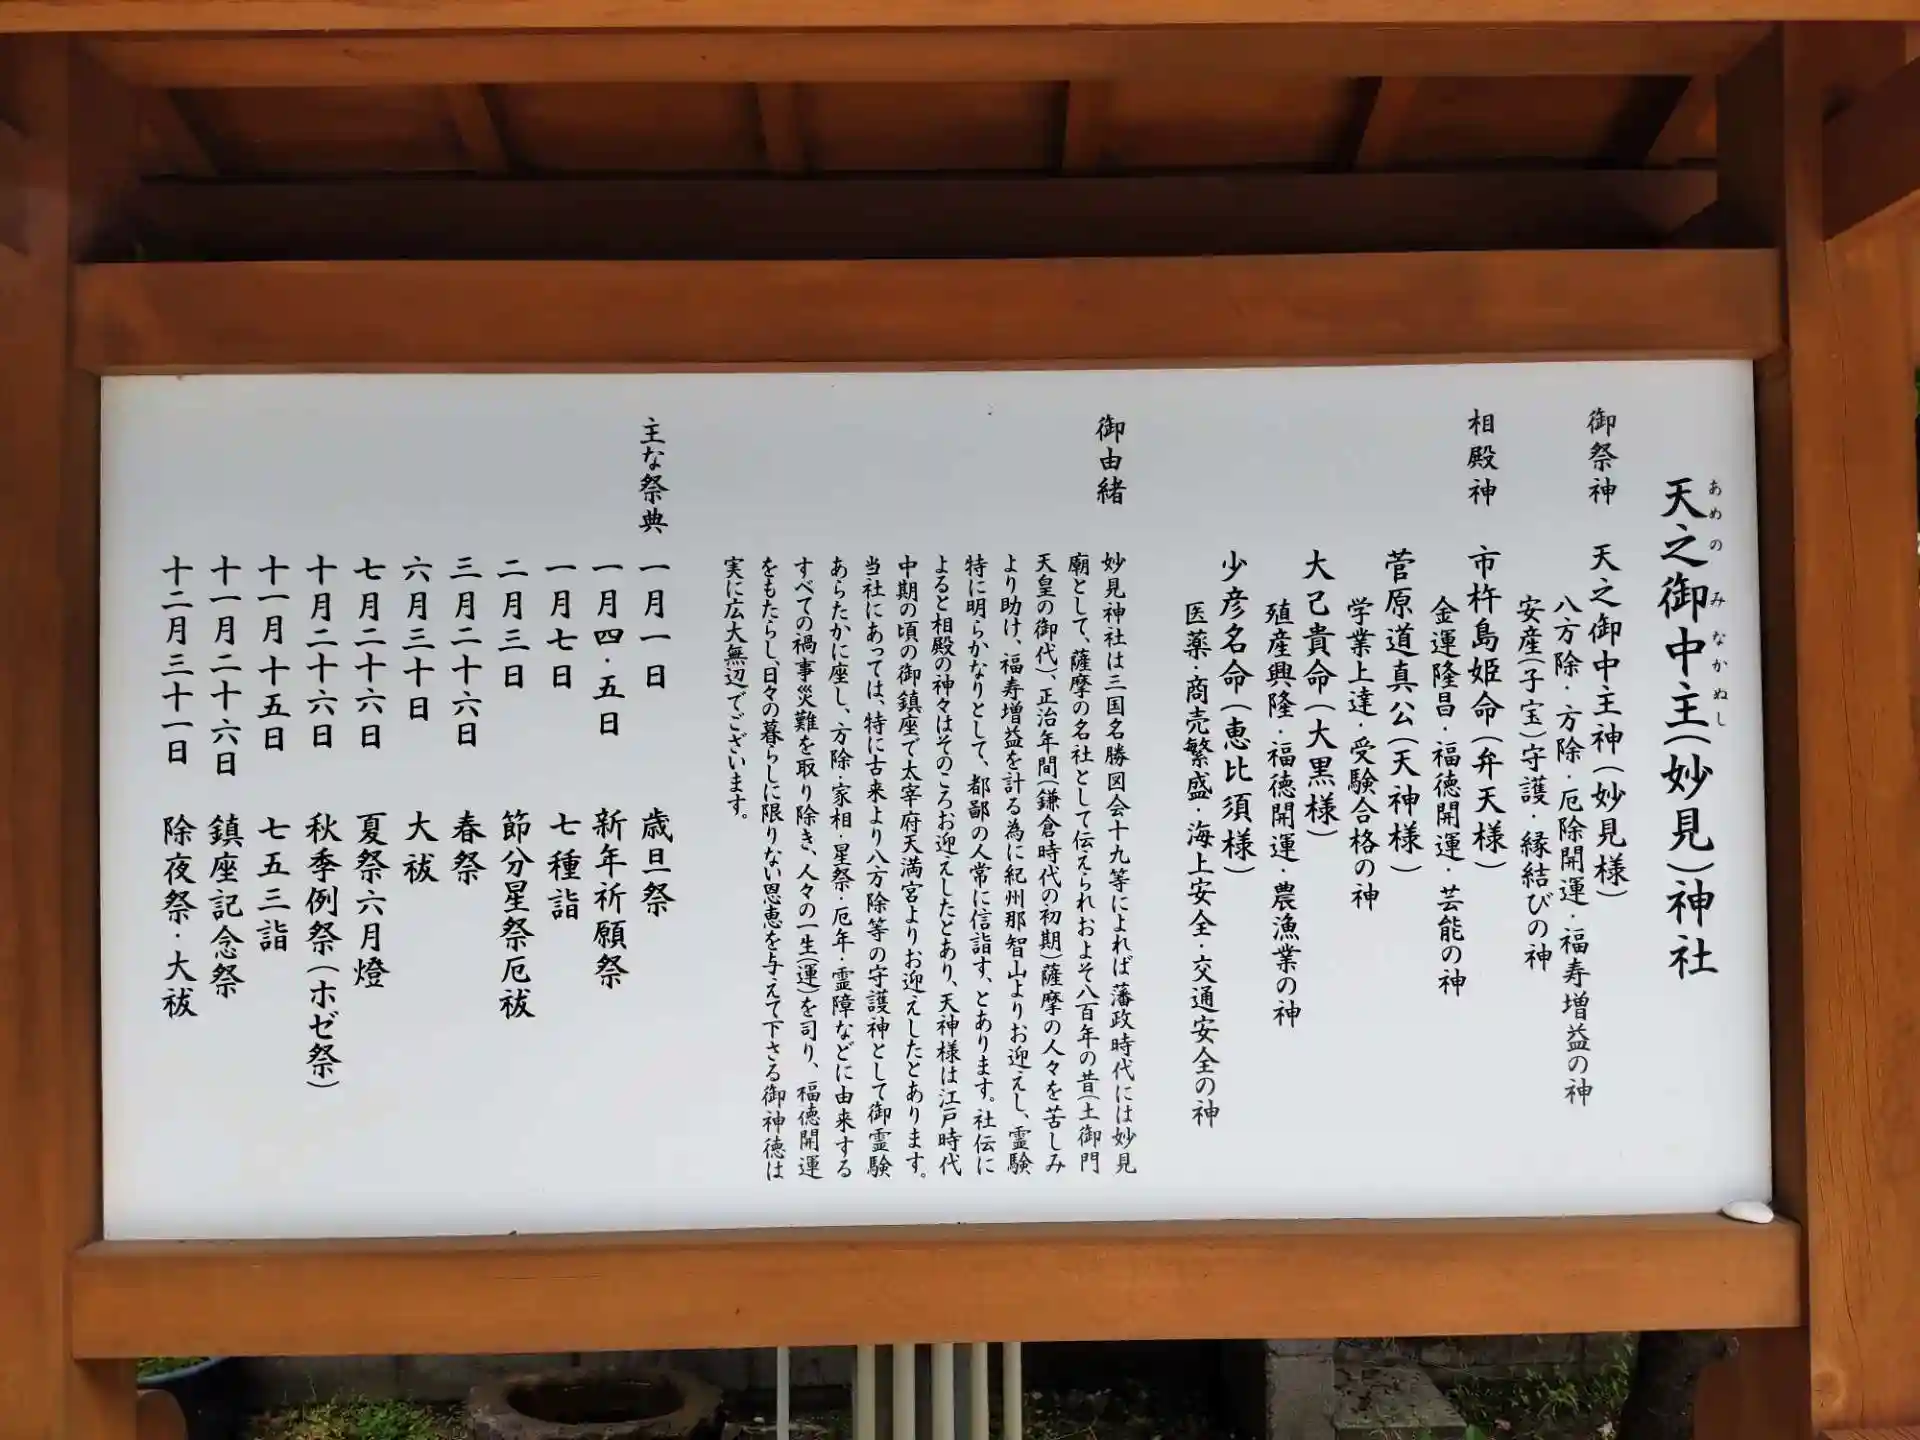 天之御中主(妙見)神社
あめのみなかぬし
御祭神 天之御中主神(妙見様)
八方除・方除・厄除開運・福寿増益の神
安産(子宝)守護・縁結びの神
相殿神 市杵島姫命(弁天様)
金運隆昌・福徳開運・芸能の神
菅原道真公(天神様)
学業上達・受験合格の神
大己貴命(大黒様)
殖産興隆・福徳開運・農漁業の神
少彦名命(恵比須様)
医薬・商売繁盛・海上安全・交通安全の神
御由緒
妙見神社は三国名勝図会十九等によれば藩政時代には妙見
廟として、薩摩の名社として伝えられおよそ八百年の昔(土御門
天皇の御代)、正治年間(鎌倉時代の初期)薩摩の人々を苦しみ
より助け、福寿増益を計る為に紀州那智山よりお迎えし、霊験
特に明らかなりとして、都鄙の人常に信詣す、とあります。社伝に
よると相殿の神々はそのころお迎えしたとあり、天神様は江戸時代
中期の頃の御鎮座で太宰府天満宮よりお迎えしたとあります。
当社にあっては、特に古来より八方除等の守護神として御霊験
あらたかに座し、方除・家相・星祭・厄年・霊障などに由来する
すべての禍事災難を取り除き、人々の一生(運)を司り、福徳開運
をもたらし、日々の暮らしに限りない恩恵を与えて下さる御神徳は
実に広大無辺でございます。
主な祭典 一月一日 歳旦祭
一月四・五日 新年祈願祭
一月七日 七種詣
二月三日 節分星祭厄祓
三月二十六日 春祭
六月三十日 大祓
七月二十六日 夏祭六月燈
十月二十六日 秋季例祭(ホゼ祭)
十一月十五日 七五三詣
十一月二十六日 鎮座記念祭
十二月三十一日 除夜祭・大祓